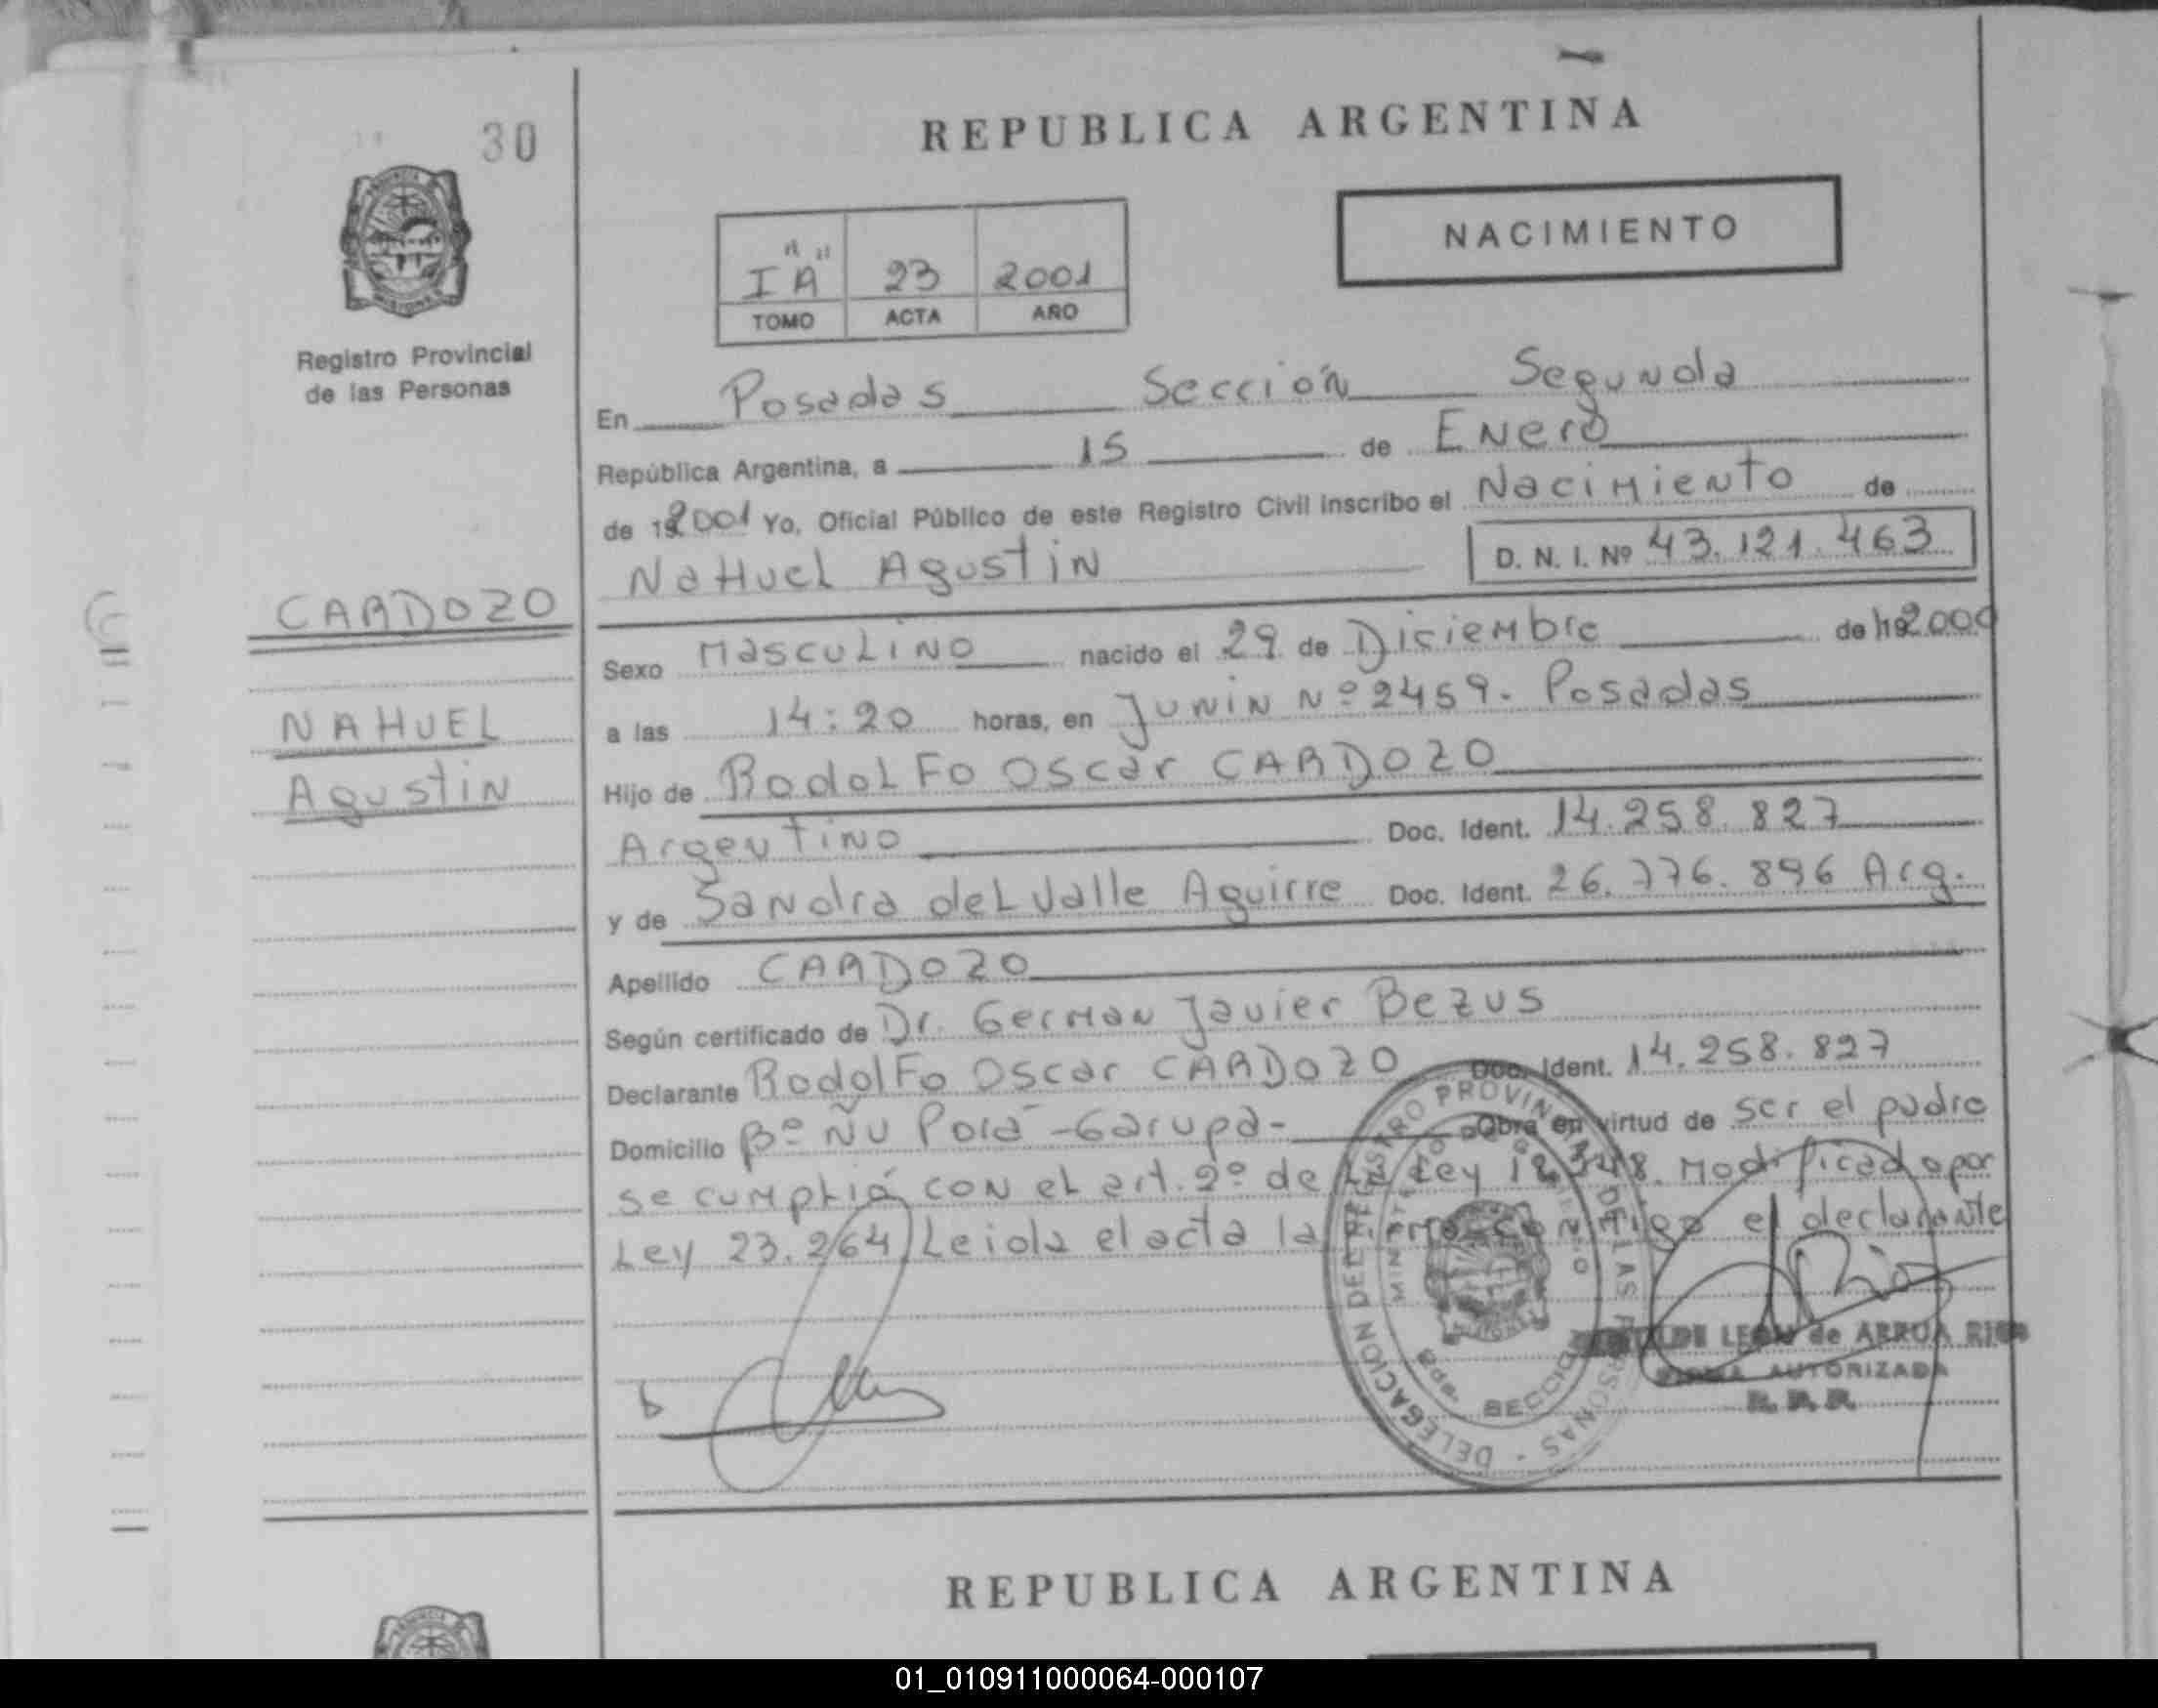 30
REPUBLICA ARGENTINA
NACIMIENTO
I "A" 23 2001
TOMO ACTA AÑO
Registro Provincial
de las Personas
En Posadas Sección Segunda
República Argentina, a 15 de Enero
de 2001 Yo, Oficial Público de este Registro Civil inscribo el Nacimiento de
NaHueL Agustin D. N. I. Nº 43.121.463
CARDOZO
NAHUEL
Agustin
Sexo MascuLiNo nacido el 29 de Diciembre de 192000
a las 14:20 horas, en Junin Nº 2459. Posadas
Hijo de RodoLFo Oscar CARDOZO
Argentino Doc. Ident. 14.258.827
y de Sandra del Valle Aguirre Doc. Ident. 26.776.896 Arg.
Apellido CARDOZO
Según certificado de Dr. German Javier Bezus
Declarante RodolFo Oscar CARDOZO Doc. Ident. 14.258.827
Domicilio Bº Ñu Porá -Garupa- Obra en virtud de ser el padre
se cumplió con el art. 2º de la Ley 18.248. Modificado por
Ley 23.264 Leida el acta la firma conmigo el declarante
DELEGACION DEL REGISTRO PROVINCIAL DE LAS PERSONAS
MINISTERIO DE GOBIERNO
2da. SECCION
LEON de ARRUA RIOS
FIRMA AUTORIZADA
R. P. P.
REPUBLICA ARGENTINA
01_010911000064-000107